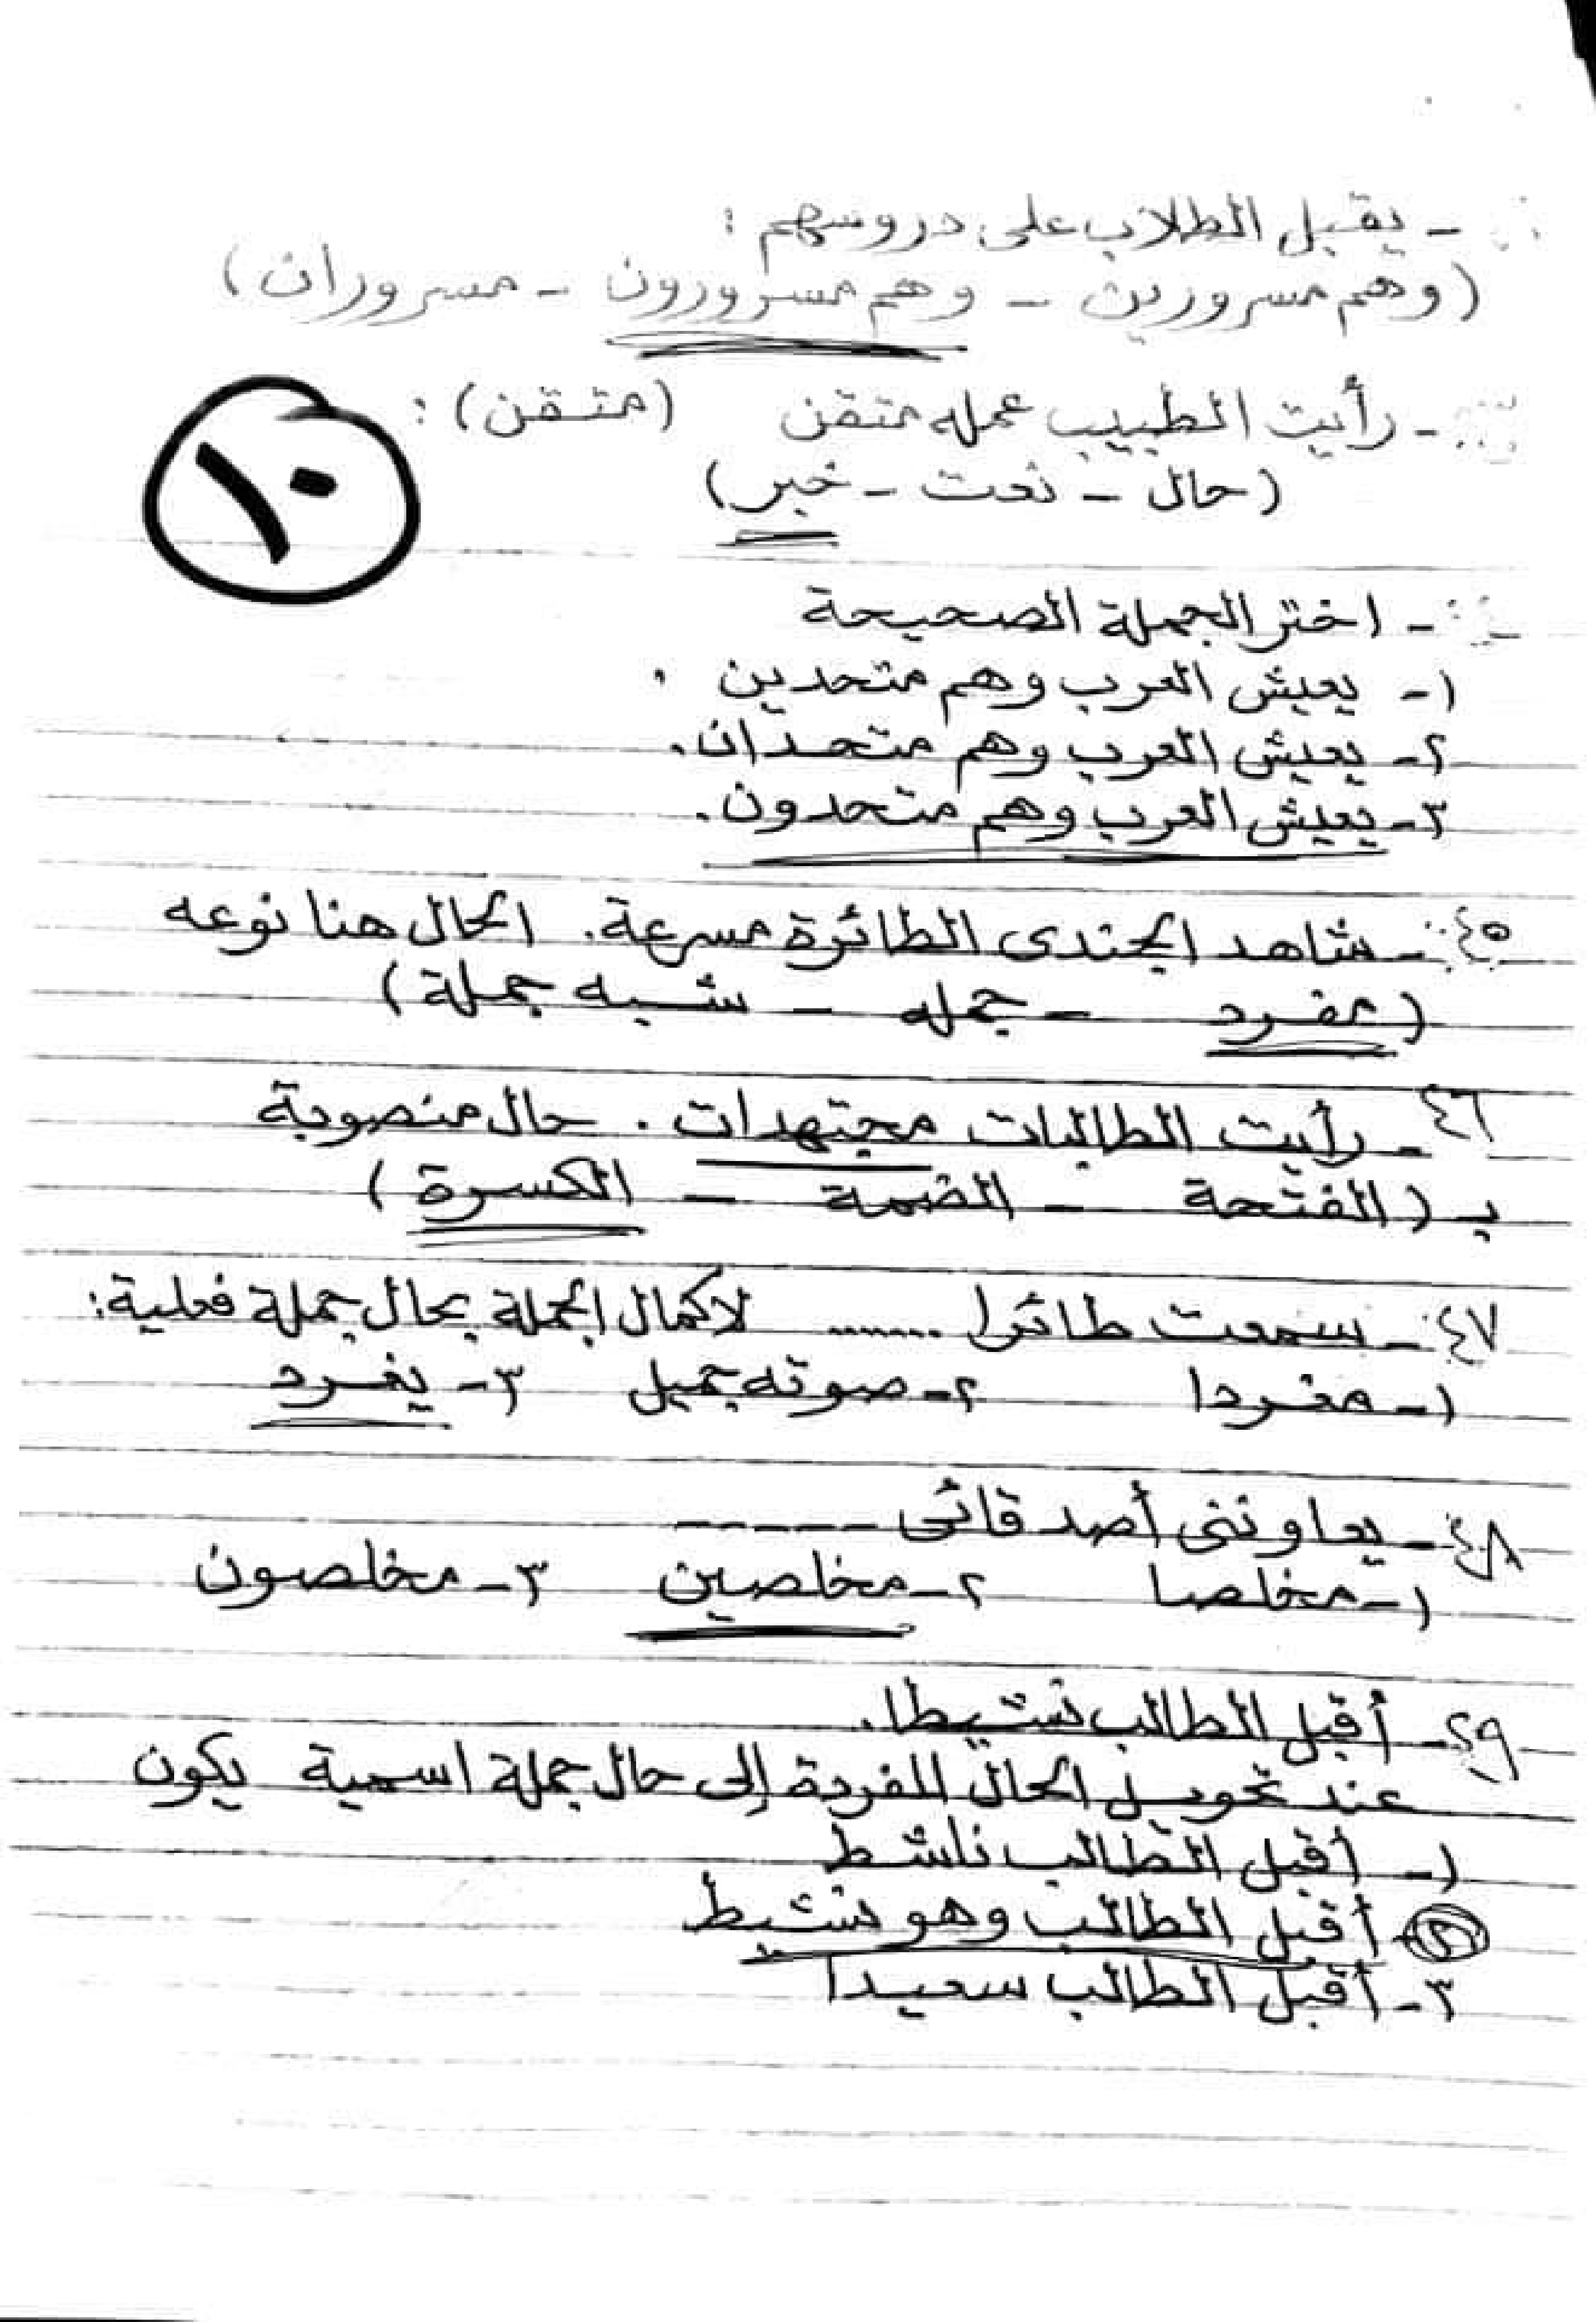 - يقبل الطلاب على دروسهم :
(وهم مسرورين - وهم مسرورون - مسروران)
- رأيت الطبيب عمله متقن (متقن) :
(حال - نعت - خبر)
١٠
- اختر الجملة الصحيحة
١- يعيش العرب وهم متحدين .
٢- يعيش العرب وهم متحدان.
٣- يعيش العرب وهم متحدون.
٤٥- شاهد الجندى الطائرة مسرعة. الحال هنا نوعه
(مفرد - جمله - شبه جملة)
٤٦- رأيت الطالبات مجتهدات . حال منصوبة
بـ (الفتحة - الضمة - الكسرة)
٤٧- سمعت طائرا ........ لاكمال الجملة بحال جملة فعلية:
١- مغردا ٢- صوته جميل ٣- يغرد
٤٨- يعاوننى أصدقائى -----
١- مخلصا ٢- مخلصين ٣- مخلصون
٤٩- أقبل الطالب نشيطا.
عند تحويل الحال المفردة إلى حال جملة اسمية يكون
١- أقبل الطالب ناشط
٢- أقبل الطالب وهو نشيط
٣- أقبل الطالب سعيدا